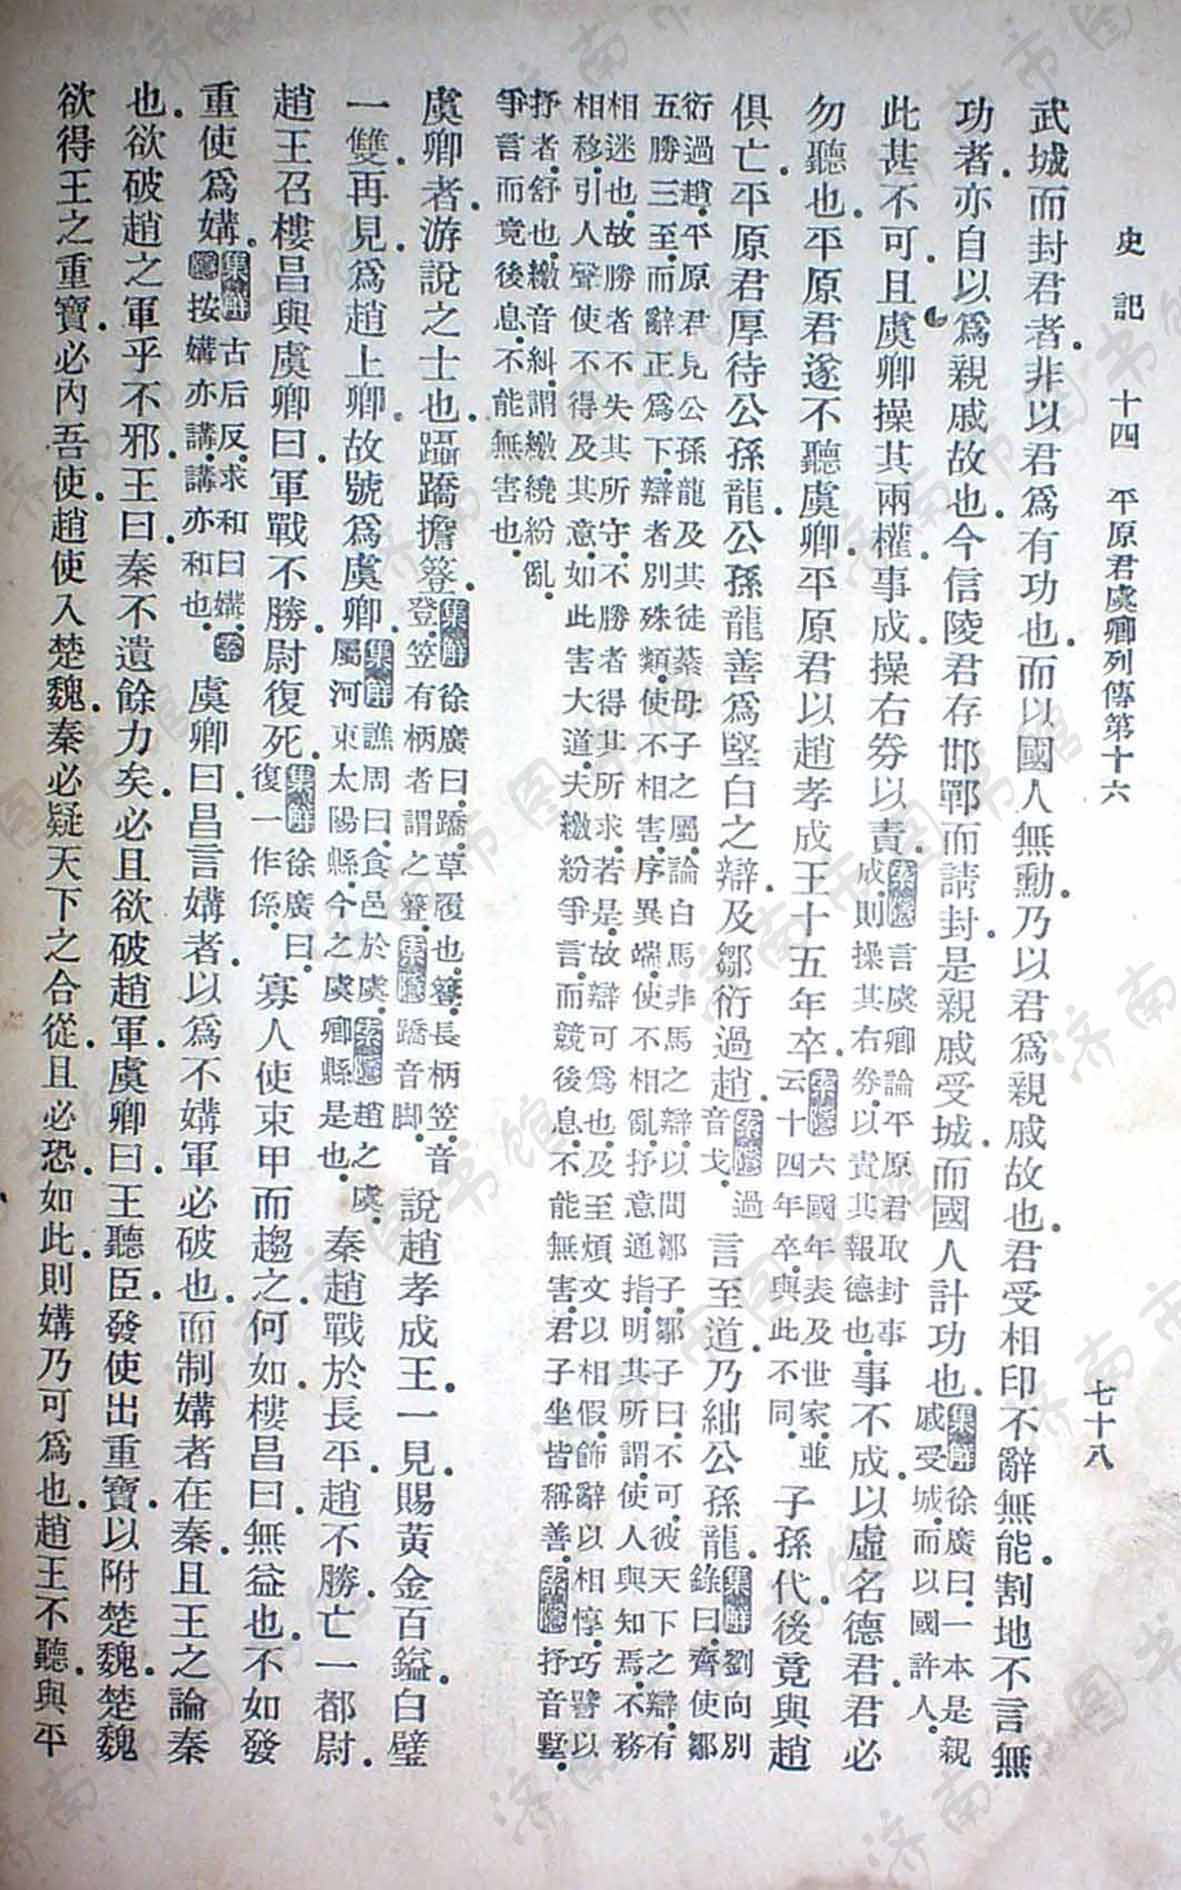 史記 十四 平原君虞卿列傳第十六 七十八
武城而封君者。非以君爲有功也。而以國人無勳。乃以君爲親戚故也。君受相印不辭無能。割地不言無
功者。亦自以爲親戚故也。今信陵君存邯鄲而請封。是親戚受城。而國人計功也。集解徐廣曰。一本是親戚受城。而以國許人。
此甚不可。且虞卿操其兩權。事成。操右券以責。索隱言虞卿論平原君取封事成。則操其右券。以責其報德也。事不成。以虛名德君。君必
勿聽也。平原君遂不聽虞卿。平原君以趙孝成王十五年卒。索隱六國年表及世家。並云十四年卒。與此不同。子孫代。後竟與趙
俱亡。平原君厚待公孫龍。公孫龍善爲堅白之辯。及鄒衍過趙。索隱過音戈。言至道。乃絀公孫龍。集解劉向別錄曰。齊使鄒
衍過趙。平原君見公孫龍及其徒綦母子之屬。論白馬非馬之辯。以問鄒子。鄒子曰。不可。彼天下之辯有
五勝三至。而辭正爲下。辯者別殊類。使不相害。序異端。使不相亂。抒意通指。明其所謂。使人與知焉。不務
相迷也。故勝者不失其所守。不勝者得其所求。若是。故辯可爲也。及至煩文以相假。飾辭以相惇。巧譬以
相移。引人聲使不得及其意。如此害大道。夫繳紛爭言。而競後息。不能無害。君子坐皆稱善。索隱抒音墅。
抒者。舒也。繳音糾。謂繳繞紛亂。
爭言而竟後息。不能無害也。
虞卿者。游說之士也。躡蹻擔簦。集解徐廣曰。蹻。草履也。簦。長柄笠。音登。笠有柄者謂之簦。索隱蹻音脚。說趙孝成王。一見。賜黃金百鎰。白璧
一雙。再見。爲趙上卿。故號爲虞卿。集解譙周曰。食邑於虞。索隱趙之虞。屬河東太陽縣。今之虞鄉縣是也。秦趙戰於長平。趙不勝。亡一都尉。
趙王召樓昌與虞卿曰。軍戰不勝。尉復死。集解徐廣曰。復一作係。寡人使束甲而趨之。何如。樓昌曰。無益也。不如發
重使爲媾。集解古后反。求和曰媾。索隱按媾亦講。講亦和也。虞卿曰。昌言媾者。以爲不媾軍必破也。而制媾者在秦。且王之論秦
也。欲破趙之軍乎不邪。王曰。秦不遺餘力矣。必且欲破趙軍。虞卿曰。王聽臣。發使出重寶。以附楚魏。楚魏
欲得王之重寶。必內吾使。趙使入楚魏。秦必疑天下之合從。且必恐。如此。則媾乃可爲也。趙王不聽。與平